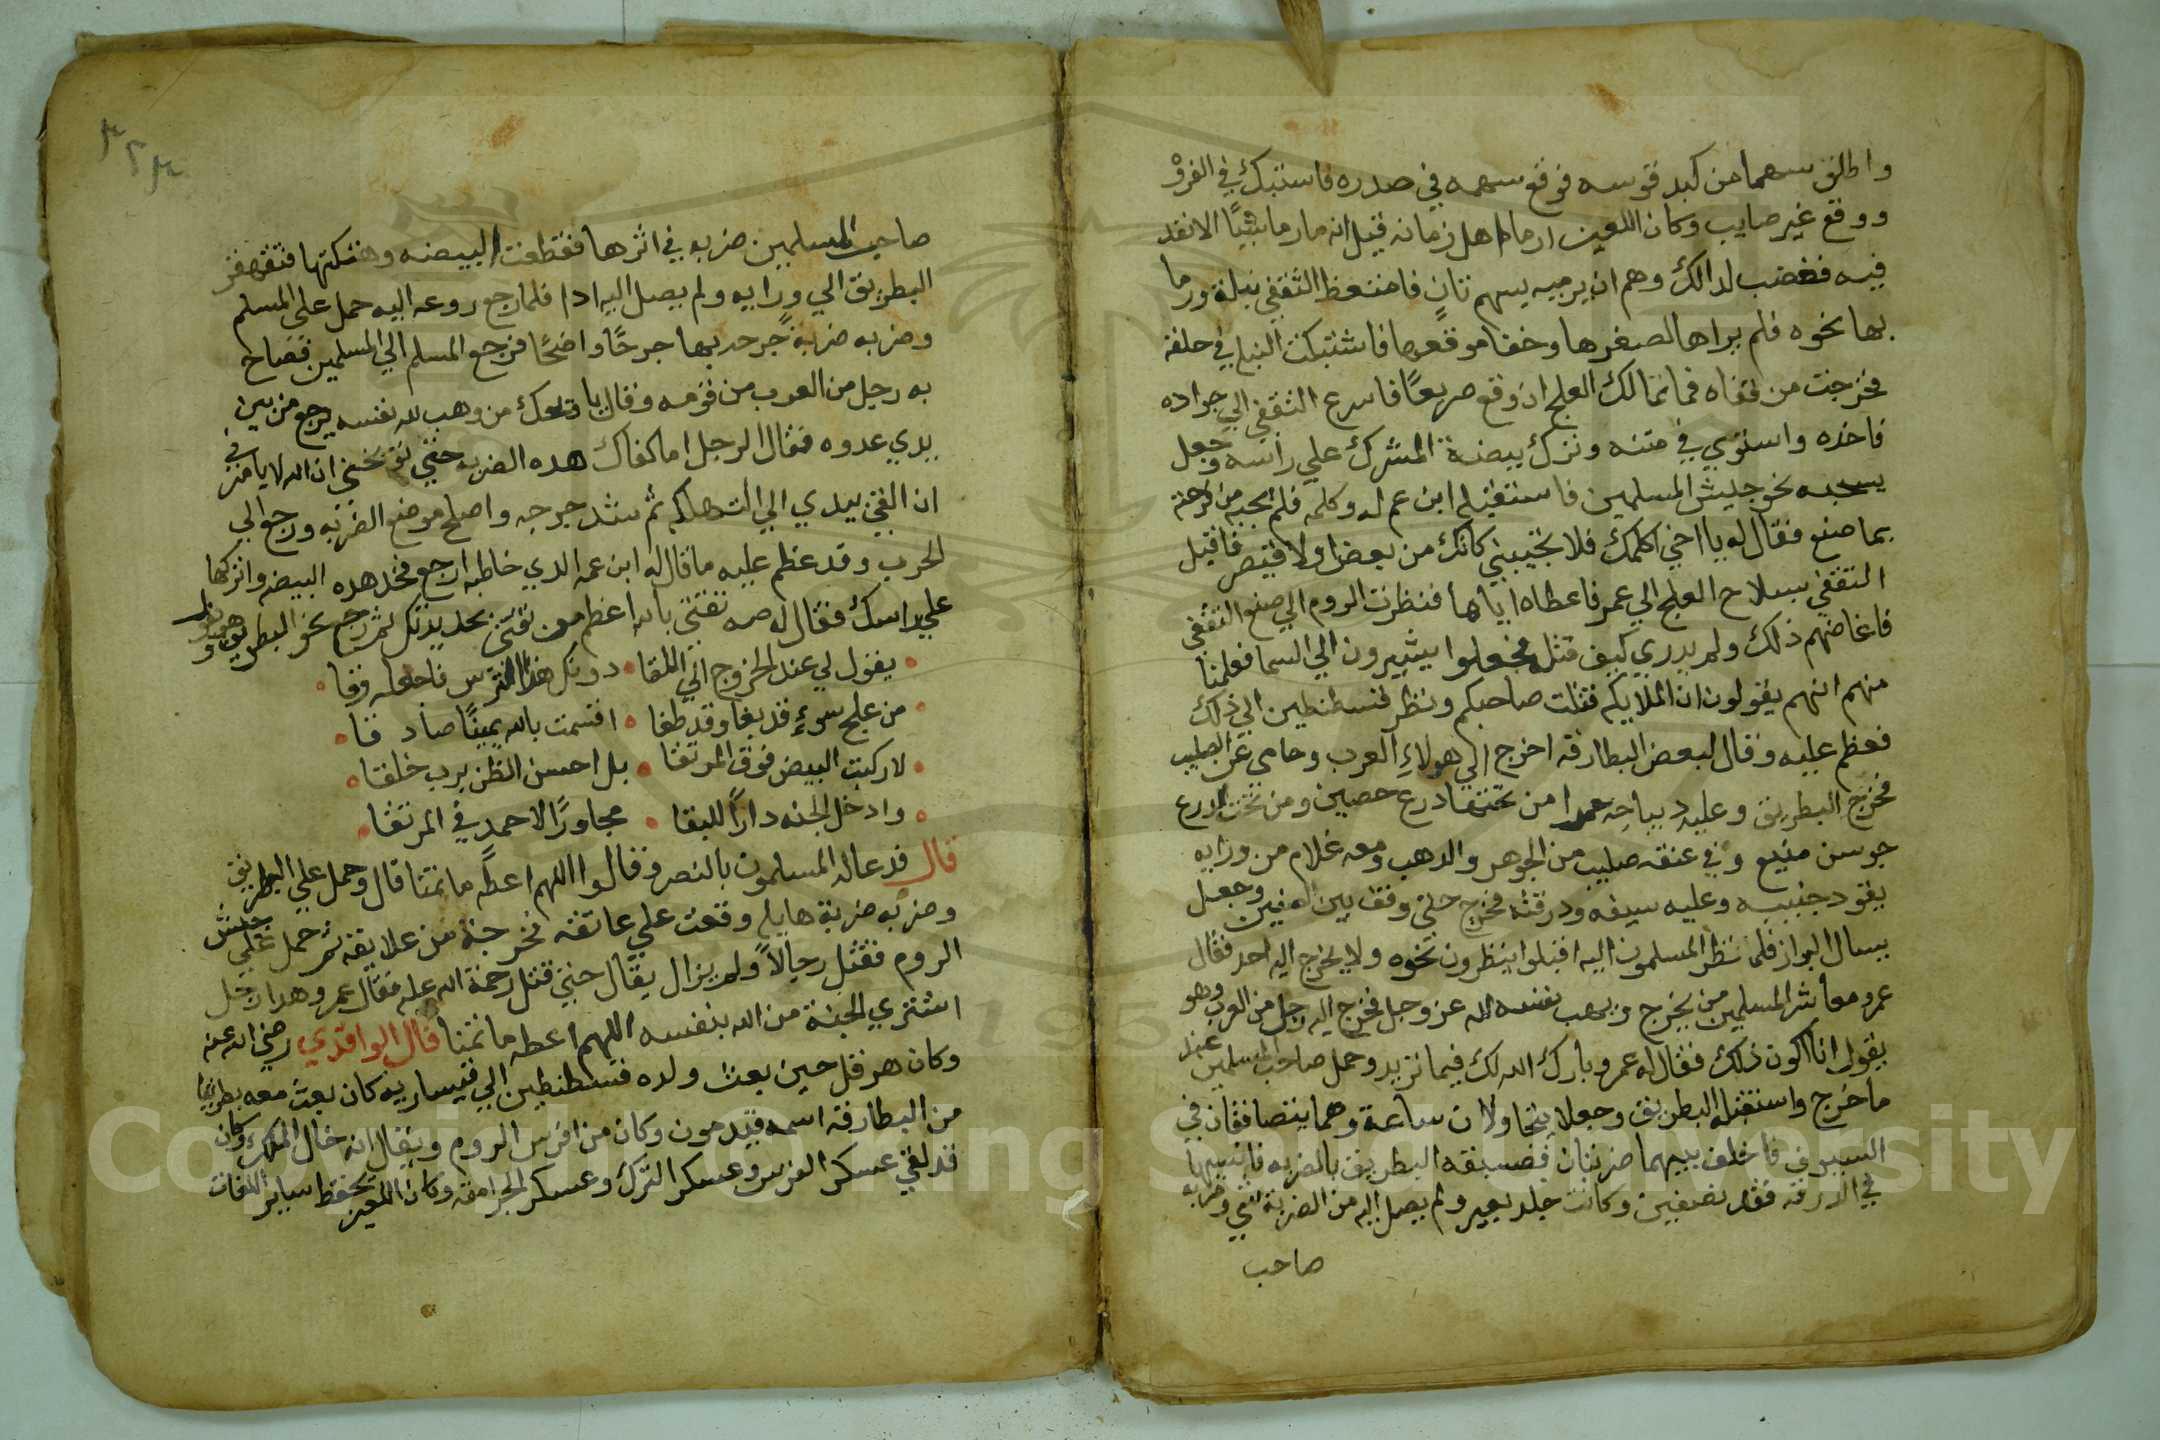 واطلق سهما من كبد قوسه فوقع سهمه في صدره فاستبك في الفرو
ووقع غير صايب وكان اللعين ارما اهل زمانه قيل انه ما رما شيًا الا نفد
فيه فغضب لدالك وهم ان يرميه بسهم ثانٍ فامتغظ الثقفي نبلة ورما
بها نحوه فلم يراها لصغرها وخفا موقعها فاشتبكت النبله في حلقه
فخرجت من قفاه فما تمالك العلج ان وقع صريعًا فاسرع الثقفي الي جواده
فاخذه واستوي في متنه وترك بيضة المشرك علي راسه وجعل
يسحبه نحو جليش المسلمين فاستقبله ابن عم له وكلمه فلم يجبه من فرحته
بما صنع فقال له يا اخي اكلمك فلا تجيبني كانك من بعض اولاد قيصر فاقبل
الثقفي بسلاح العلج الي عمر فاعطاه اياها فنظرت الروم الي صنع الثقفي
فاغاضهم ذلك ولم يدري كيف قتله فجعلوا يشيرون الي السما فعلمنا
منهم انهم يقولون ان الملايكه قتلت صاحبكم ونظر قسطنطين الي ذلك
فعظم عليه وقال لبعض البطارقه اخرج الي هولاءِ العرب وحامي عن الصليب
فخرج البطريق وعليه ديباجه حمرا من تحتها درع حصين ومن تحت الدرع
جوسن منيع وفي عنقه صليب من الجوهر والدهب ومعه غلام من ورايه
يقود جنيبه وعليه سيفه ودرقته فخرج حتي وقف بين الصفين وجعل
يسال البراز فلما نظر المسلمون اليه اقبلوا ينظرون نحوه ولا يخرج اليه احد فقال
عمرو معاشر المسلمين من يخرج ويهب نفسه لله عز وجل فخرج اليه رجل من العرب وهو
يقول انا اكون ذلك فقال له عمرو بارك الله لك فيما تريد وحمل صاحب المسلمين عند
ما خرج واستقبله البطريق وجعلا يتجاولان ساعة وهما يتصافقان في
السيوف فاختلف بينهما ضربتان فسبقه البطريق بالضربه فاثنيها
في الدرقه فقد نصفين وكانت جلد بعير ولم يصل اليه من الضربة شي وضربه
صاحب
صاحب المسلمين ضربه في اثرها فقطعت البيضه وهتكتها فتقهقر
البطريق الي ورايه ولم يصل اليه ادا فلما رجع روعه اليه حمل علي المسلم
وضربه ضربة جرحه بها جرحًا واضحًا فرجع المسلم الي المسلمين فصاح
به رجل من العرب من قومه وقال يا ويحك من وهب لله نفسه يرجع من بين
يدي عدوه فقال الرجل اما كفاك هده الضربه حتي توبخني ان الله لا يامر في
ان القي بيدي الي التهلكه ثم شد جرحه واصلح موضع الضربه ورجع الي
الحرب وقد عظم عليه ما قال له ابن عمه الدي خاطبه ارجع فخد هده البيضه واتركها
علي راسك فقال له صه ثقتي بالله اعظم من ثقتي بحديدتك ثم رجع نحو البطريق وهو يقول
يقول لي عند الخروج الي اللقا دونك هذا الترس فاجعله وقا
من علج سوءٍ قد بغا وقد طغا اقسمت بالله يمينًا صاد قا
لا ركبت البيض فوق المرتقا بل احسن الظن برب خلقا
وادخل الجنه دارًا للبقا مجاورًا الاحمد في المرتقا
قال فدعا له المسلمون بالنصر وقالوا اللهم اعطه ما تمنا قال وحمل علي البطريق
وضربه ضربة هايله وقعت علي عاتقه فخرجت من علايقه ثم حمل علي جيش
الروم فقتل رجالاً ولم يزال يقال حتي قتل رحمة الله عليه فقال عمرو هدا رجل
اشتري الجنة من الله بنفسه اللهم اعطه ما تمنا قال الواقدي رضي الله عنه
وكان هرقل حين بعث ولده قسطنطين الي قيسارية كان بعث معه بطريقا
من البطارقه اسمه قيدمون وكان من افرس الروم ويقال انه خال الملك وكان
قد لقي عسكر الفرس وعسكر الترك وعسكر الجرامقه وكان اللعين يحفظ ساير اللغات
٣٢٣
Copyright © King Saud University